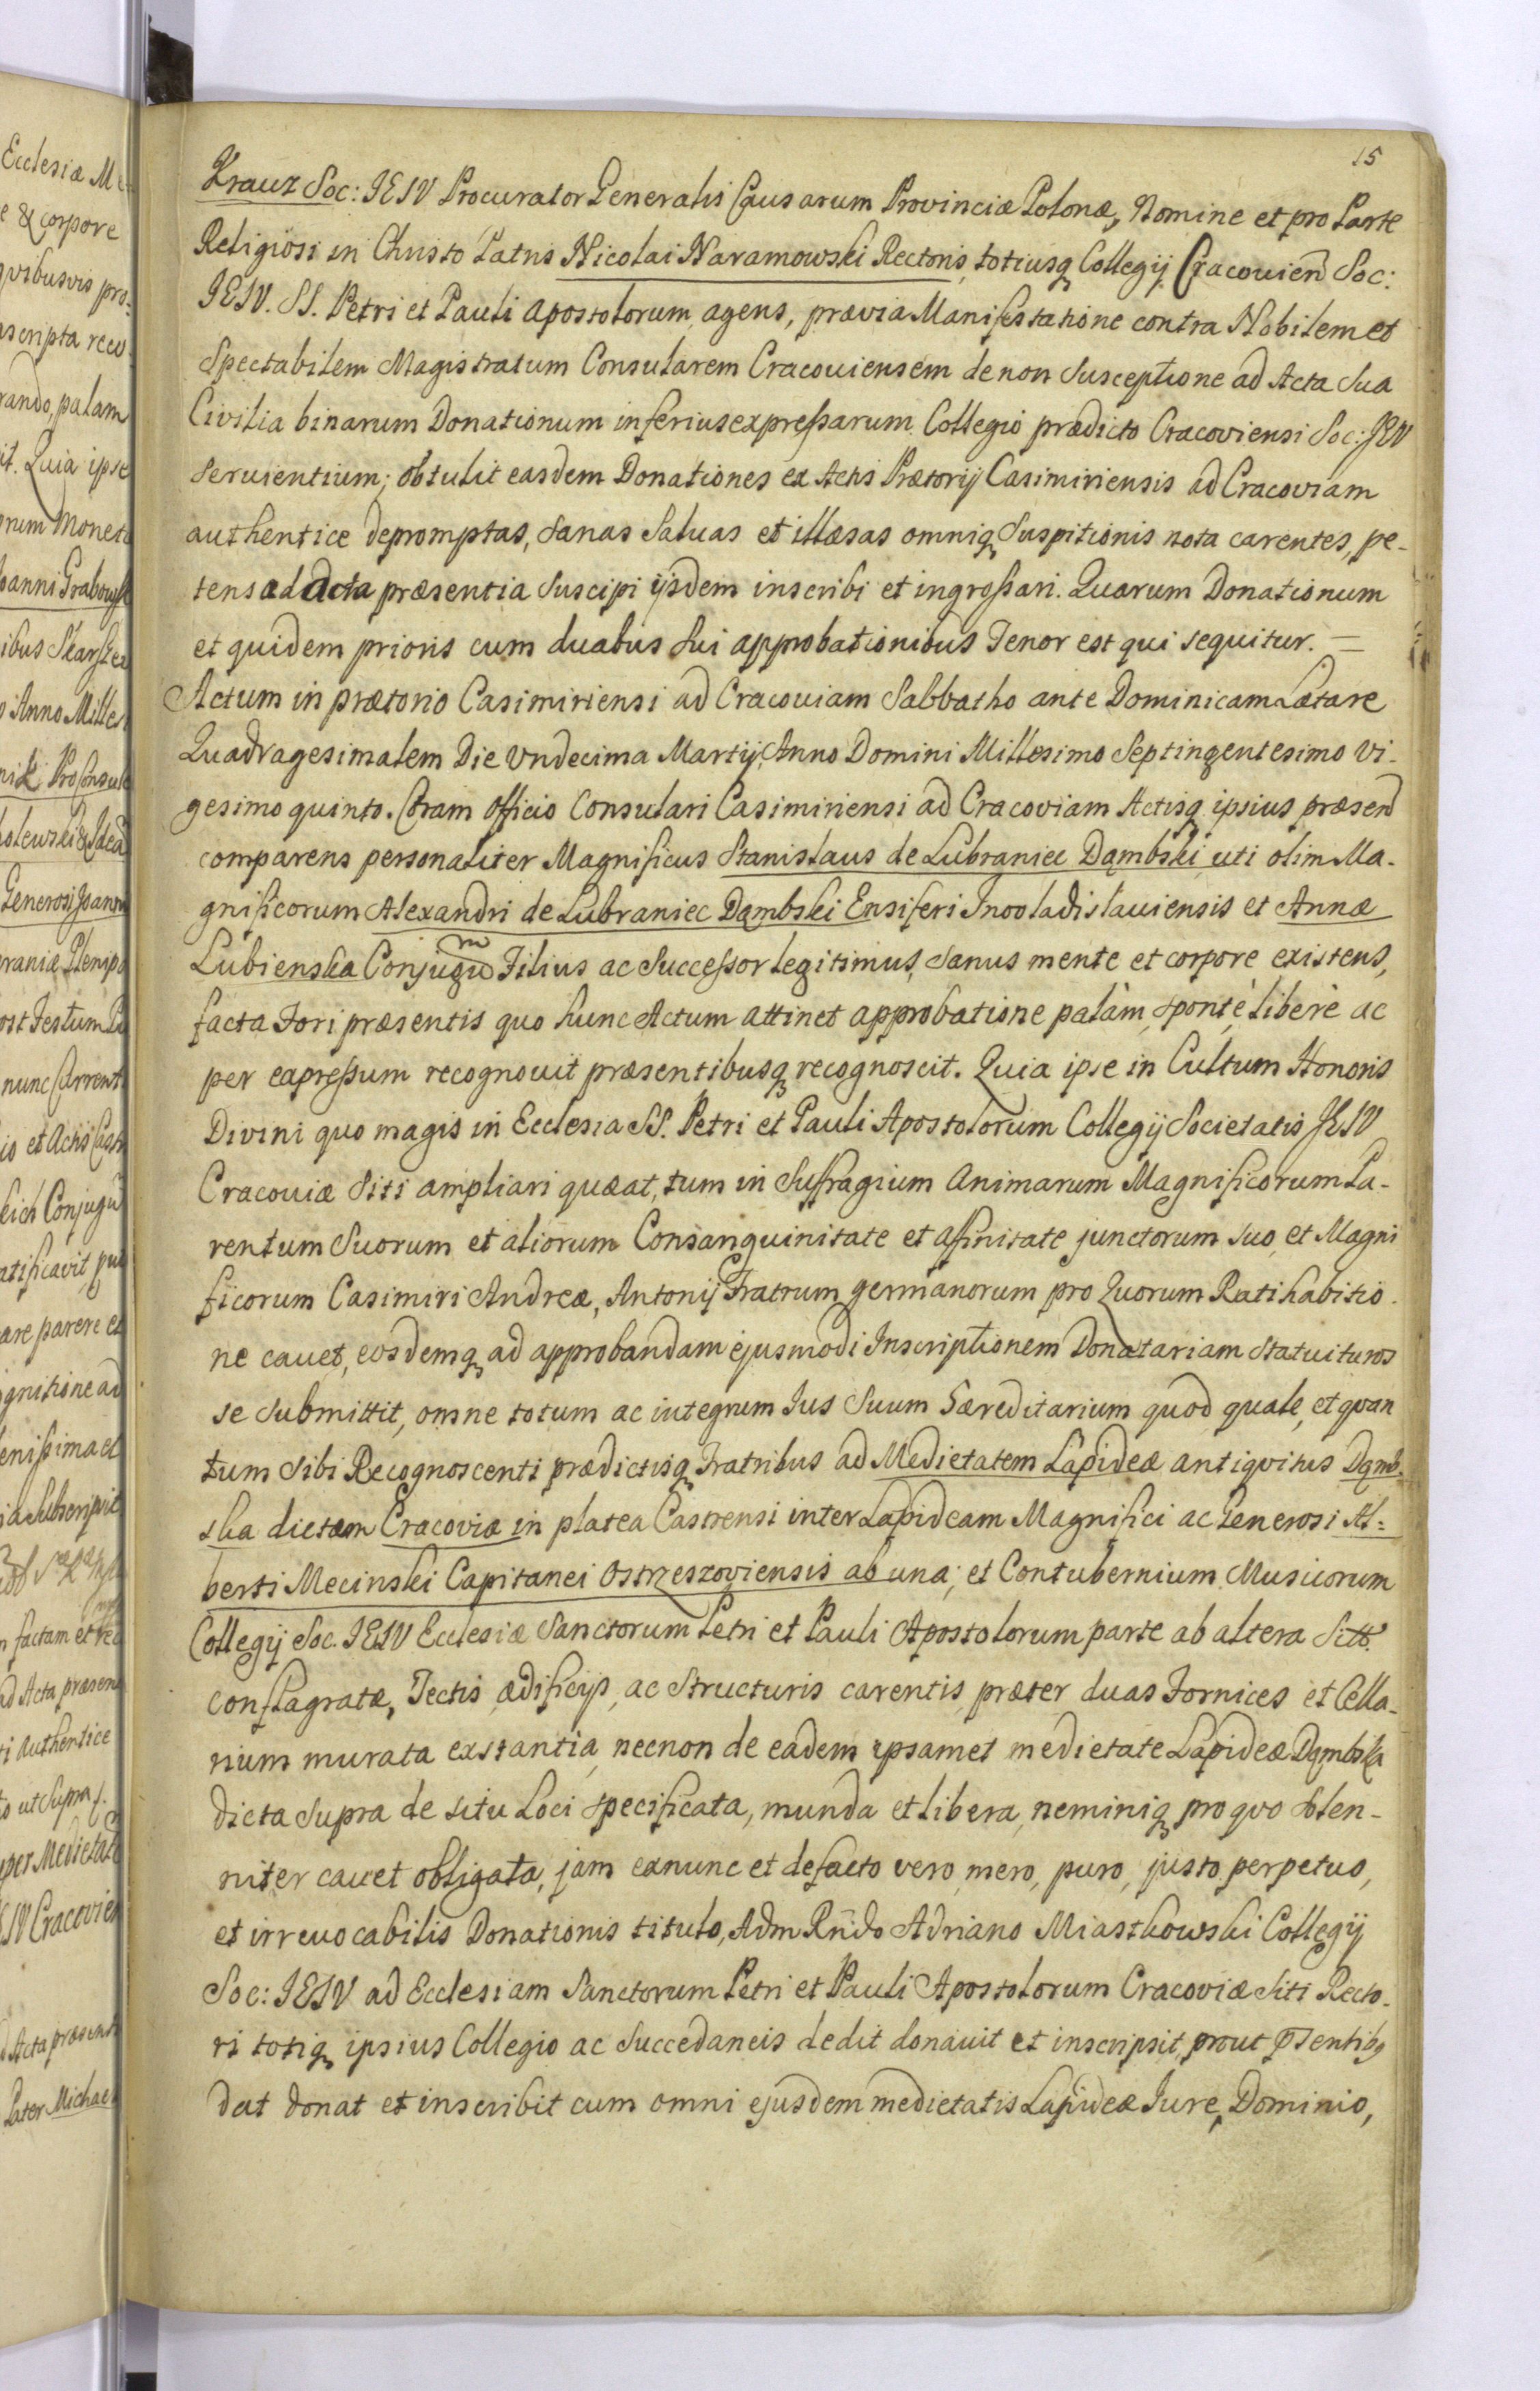 15
Krauz Soc: IESV Procurator Generalis Causarum Provinciæ Polonæ, Nomine et pro Parte
Religiosi in Christo Patris Nicolai Naramowski Rectoris, totiusq Collegij Cracovień Soc:
IESV. SS. Petri et Pauli Apostolorum agens, prævia Manifestatione contra Nobilem et
Spectabilem Magistratum Consularem Cracouiensem de non Susceptione ad Acta Sua
Civilia binarum Donationum inferius expressarum Collegio prædicto Cracoviensi Soc: IESV
seruientium; obtulit easdem Donationes ex Actis Prætorij Casimiriensis ad Cracoviam
authentice depromptas, sanas saluas et illæsas omniq suspitionis nota carentes, pe-
tens ad Acta præsentia suscipi ijsdem inscribi et ingrossari. Quarum Donationum
et quidem prioris cum duabus sui approbationibus Tenor est qui sequitur. =
Actum in prætorio Casimiriensi ad Cracouiam Sabbatho ante Dominicam Lætare
Quadragesimalem Die Vndecima Martij Anno Domini Millesimo Septingentesimo vi-
gesimo quinto. Coram Officio Consulari Casimiriensi ad Cracoviam Actisq ipsius præseń
comparens personaliter Magnificus Stanislaus de Lubraniec Dąmbski uti olim Ma-
gnificorum Alexandri de Lubraniec Dąmbski Ensiferi Inowladislauiensis et Annæ
Lubienska Conjugu͠m Filius ac Successor legitimus, sanus mente et corpore existens,
facta Fori præsentis quo hunc Actum attinet approbatione palàm, spontè liberè ac
per expressum recognouit præsentibusq recognoscit. Quia ipse in Cultum Honoris
Divini quo magis in Ecclesia SS. Petri et Pauli Apostolorum Collegij Societatis IESV
Cracouiæ siti ampliari quæat, tum in suffragium Animarum Magnificorum Pa-
rentum Suorum et aliorum Consanguinitate et affinitate junctorum suo, et Magni
ficorum Casimiri Andreæ, Antonij Fratrum germanorum pro Quorum Ratihabitio-
ne cauet, eosdemq ad approbandam ejusmodi Inscriptionem Donatariam statuituros
se submittit, omne totum ac integrum Ius Suum Hæreditarium quod quale, et quan
tum sibi Recognoscenti prædictisq Fratribus ad Medietatem Lapideæ antiquitus Dąmb-
ska dictam Cracoviæ in platea Castrensi inter Lapideam Magnifici ac Generosi Al=
berti Mecinski Capitanei Ostrzeszoviensis ab una; et Contubernium Musicorum
Collegij Soc. IESV Ecclesiæ Sanctorum Petri et Pauli Apostolorum parte ab altera Sitt.
conflagratæ, Tectis, ædificijs, ac Structuris carentis, præter duas Fornices et Cella-
rium murata exstantia, necnon de eadem ipsamet medietate Lapideæ Dąmbska
dicta supra de situ Loci specificata, munda et libera, neminiq pro quo solen-
niter cauet obligata, jam exnunc et defacto vero, mero, puro, justo, perpetuo,
et irreuocabilis Donationis titulo, Adm Rńdo Adriano Miastkowski Collegij
Soc: IESV ad Ecclesiam Sanctorum Petri et Pauli Apostolorum Cracoviæ siti Recto-
ri totiq ipsius Collegio ac succedaneis dedit donauit et inscripsit, prout pńsentibq
dat donat et inscribit cum omni ejusdem medietatis Lapideæ Iure, Dominio,